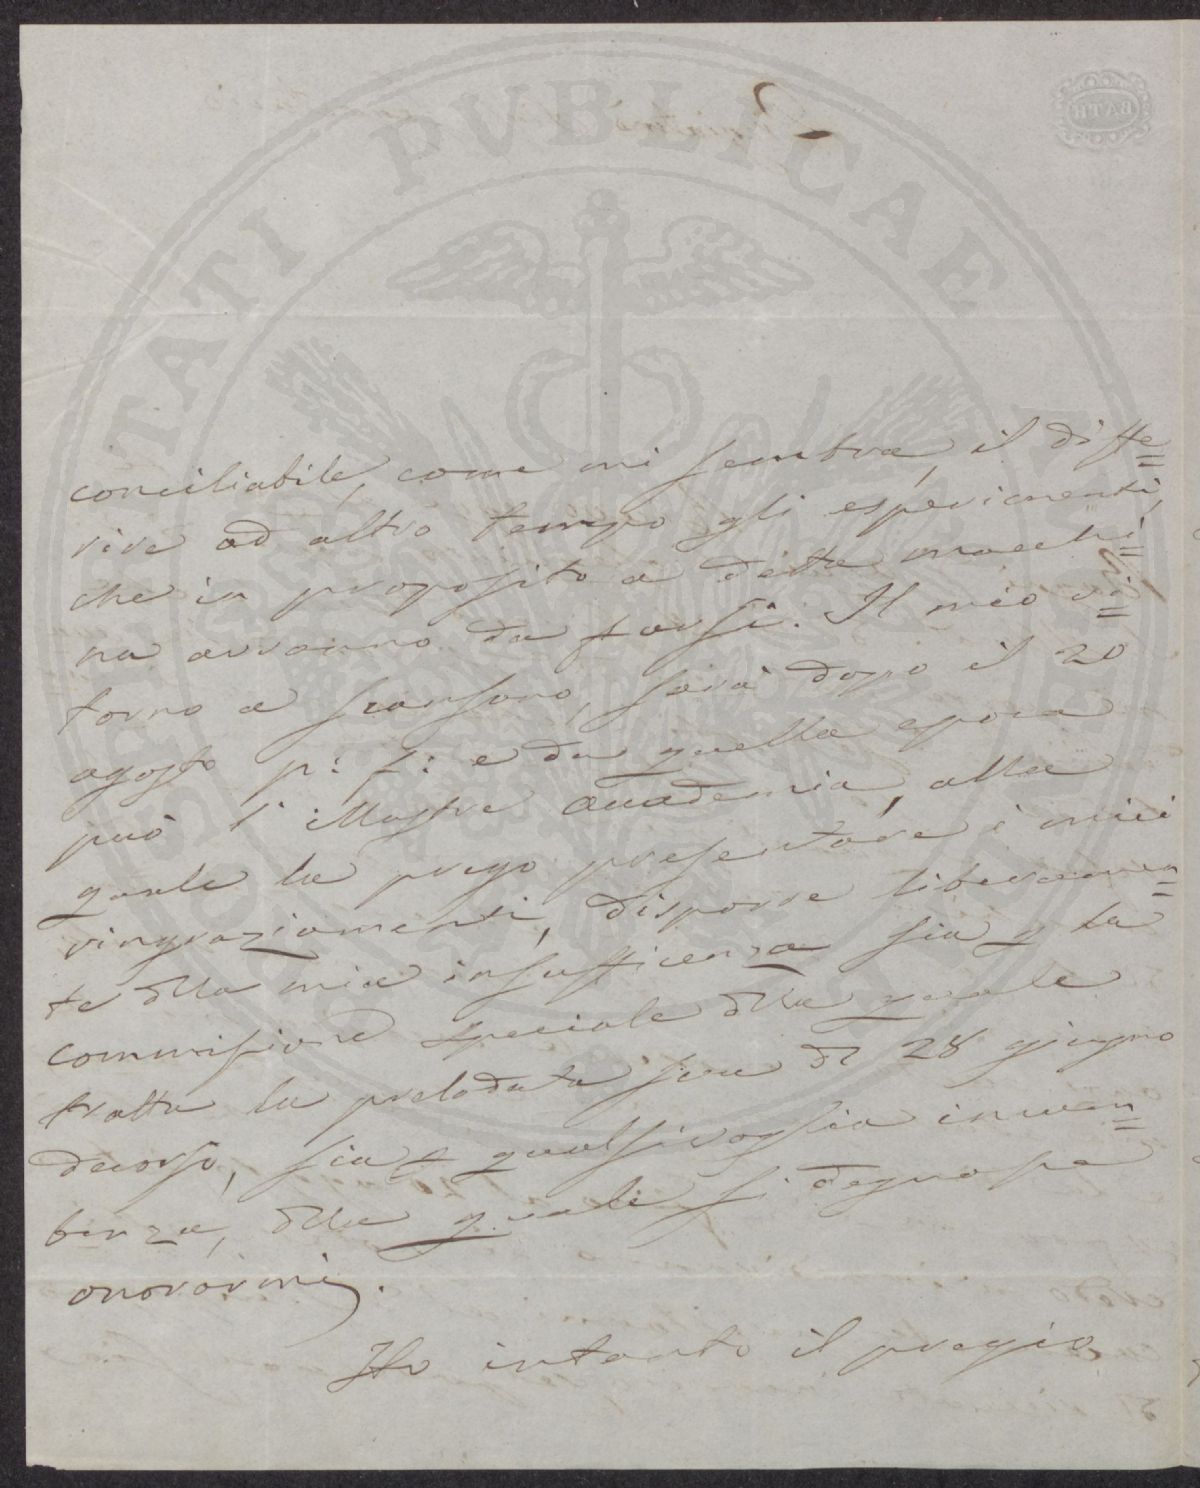 PROSPERITATI PVBLICAE AVGENDAE
BATH
conciliabile, come mi sembra, il diffe=
rire ad altro tempo gli esperimenti,
che in proposito a detta macchi=
na avranno da farsi. Il mio ri=
torno a Scansano, sarà dopo il 20
agosto p: f: e da quella epoca
può l'illustre accademia, alla
quale la prego presentare i miei
ringraziamenti, disporre liberamen=
te della mia insufficienza sia p la
commissione speciale della quale
tratta la prelodata sua de 28 giugno
decorso, sia p qualsivoglia incum=
benza, della quale si degnasse
onorarmi.
Ho intanto il pregio